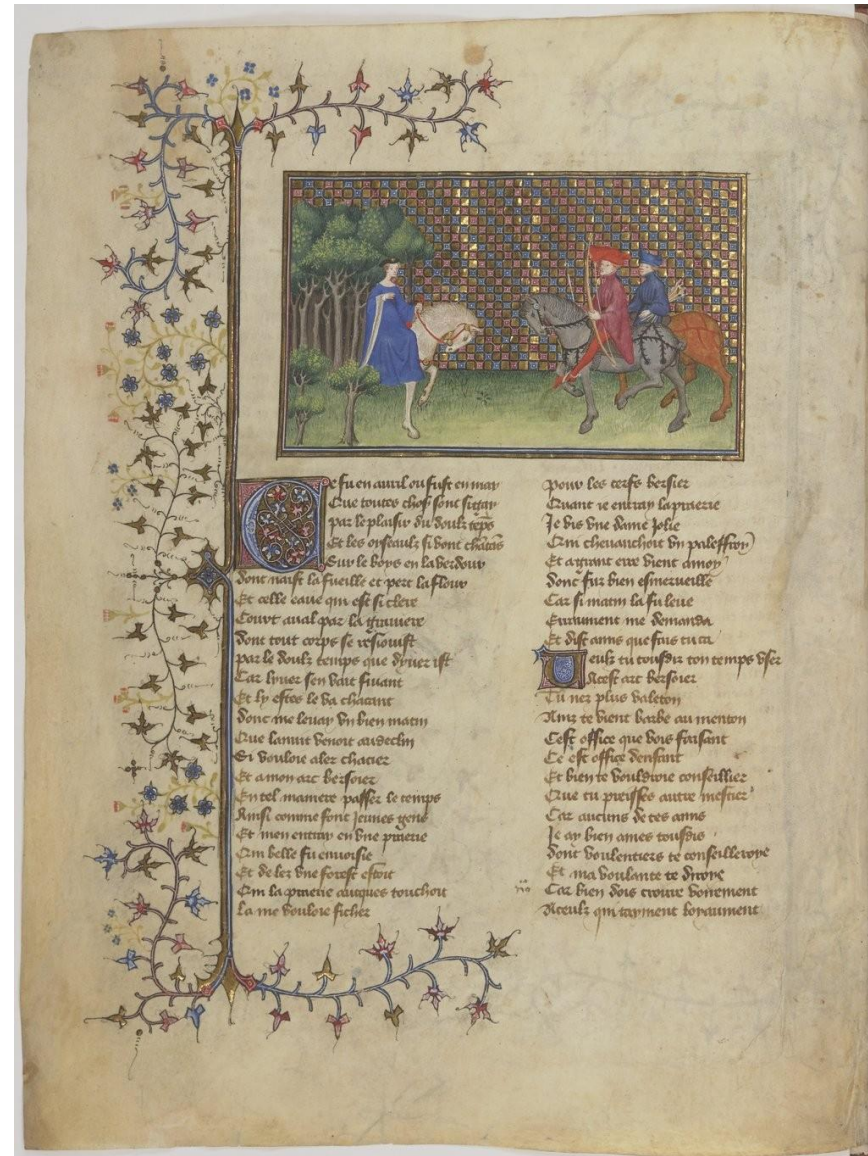 Ce fu en auril ou fust en may
Que toutes chos sont si gay
par le plaisir du doulz teps
Et les oyseaulz si vont chatas
Sur le boys en la verdour
dont naist la fueille et pert la flour
Et celle eaue qui est si clere
Court aual par la grauiere
dont tout corps se resiouist
par le doulz temps que dyuer ist
Car lyuer sen vait fuiant
Et ly estes le va chacant
donc me leuay vn bien matin
Que la nuit venoit au declin
Si vouloie aler chacier
Et a mon arc berseir
En tel maniere passer le temps
Ainsi comme font jeunes gens
Et men entray en vne praerie
Qui belle fu enuoisie
Et de lez vne forest estoit
Qui la praerie auques touchoit
La me vouloie ficher
pour les cerfs bersier
Quant ie entray la praerie
Je vis vne dame jolie
Qui cheuauchoit vn paleffroy
Et a grant erre vient a moy
donc fuz bien esmerueille
Car si matin la fu leue
Erraument me demanda
Et dist amis que fais tu ca
Veulz tu tousdiz ton temps vser
A cest arc berseir
Tu nez plus valeton
Ainz te vient barbe au menton
Cest office que vois faisant
Ce est office denfant
Et bien te vouldroie conseillier
Que tu preisses autre mestier
Car aucuns de tes amis
Je ay bien ames tousdis
dont voulentiers te conseilleroye
Et ma voulante te diroye
Car bien dois croire voirement
A ceulz qui tayment loyaument